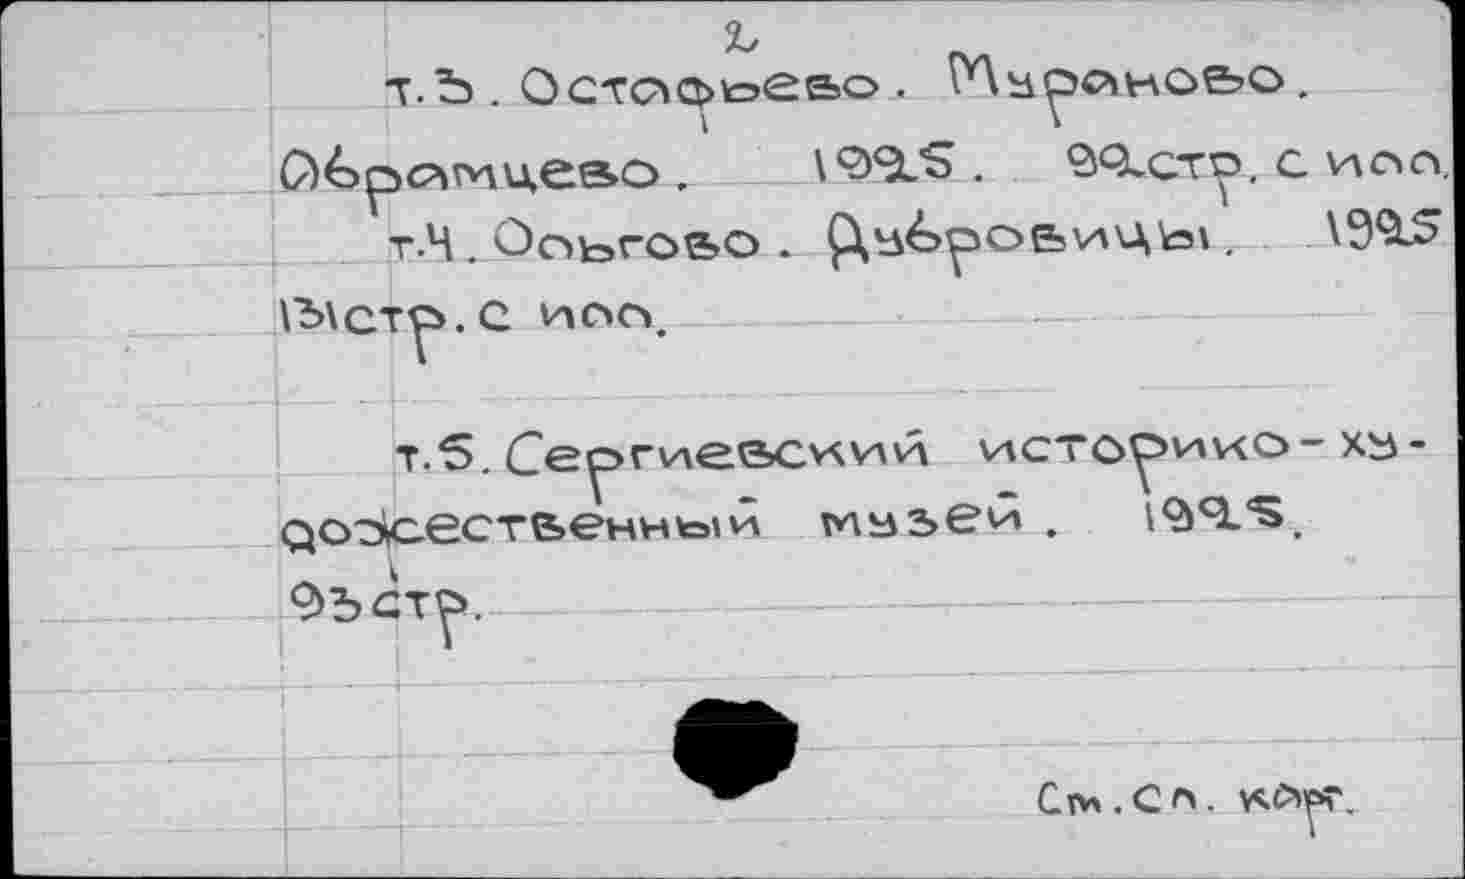 2
т.3. Остафьево. Мураново.
Абрамцево. 1925. 92стр. с илл.
т.4. Ольгово. Дубровицы. 1925
131стр. с илл.
т.5. Сергиевский историко-ху-
дожественный музей. 1925.
93стр.
См. сл. карт.